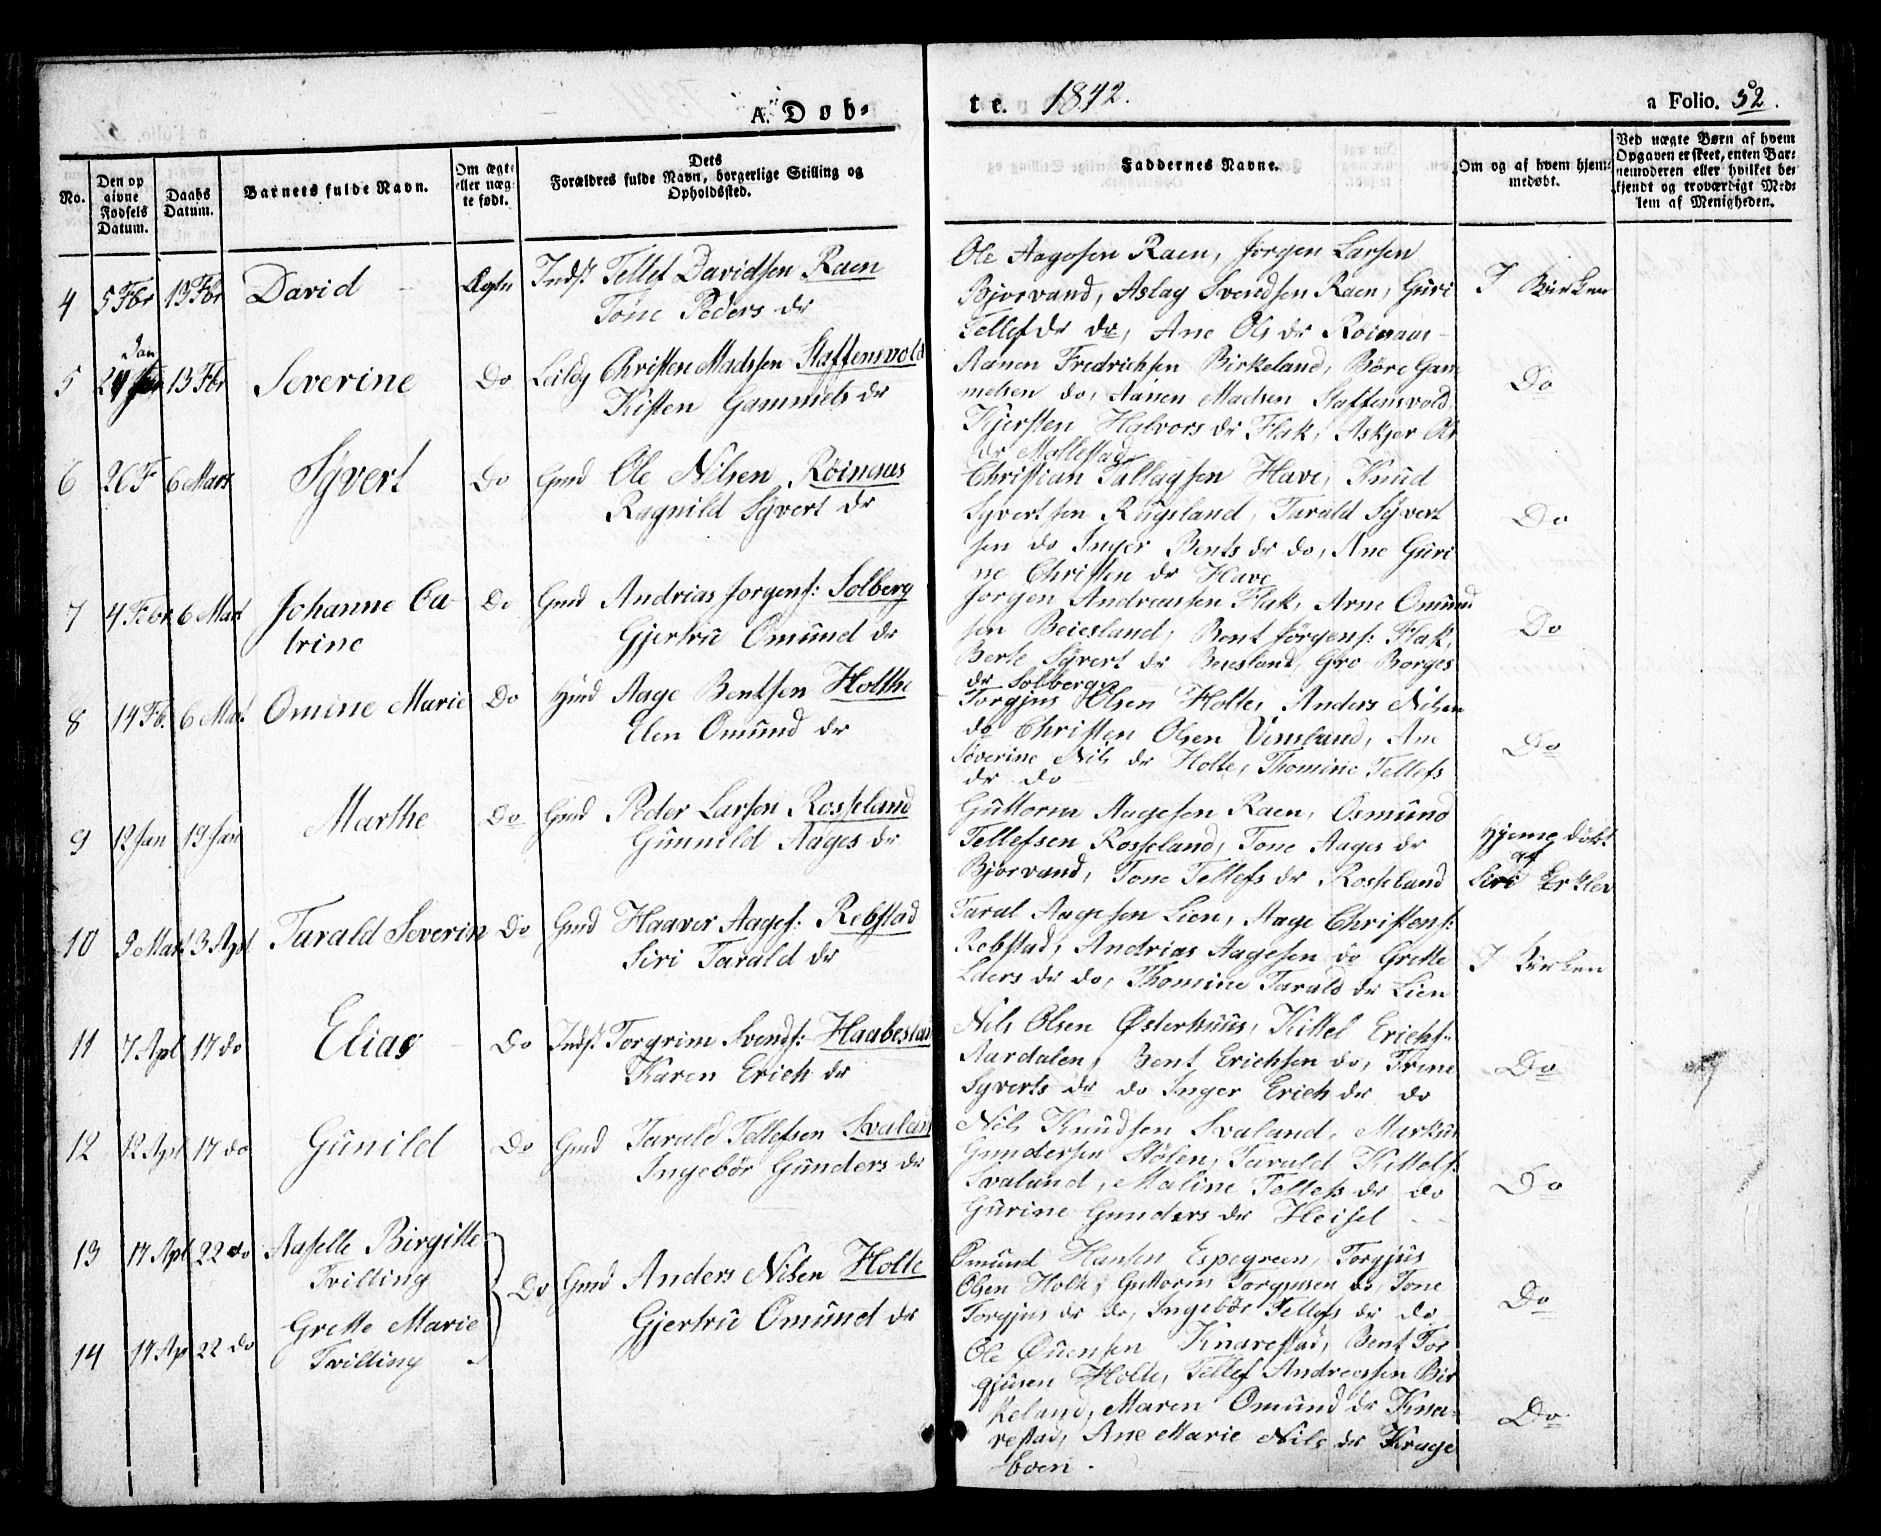 A. Døb-
te. 1842.
a Folio. 52.
No.
Den op
givne
Fødsels
Datum.
Daabs
Datum.
Barnets fulde Navn.
Om ægte
eller uæg-
te født.
Dets
Forældres fulde Navn, borgerlige Stilling og
Opholdssted.
Faddernes Navne.
Om og af hvem hjem-
medøbt.
Ved uægte Børn af hvem
Opgaven er skeet, enten Bar-
nemoderen eller hvilket be-
kjendt og troværdigt Med-
lem af Menigheden.
4 5 Fbr 13 Fbr David Ægte Indst Tellef Davidsen Raen
Tone Peders dr
Ole Aagesen Raen, Jørgen Larsen
Bjorvand, Aslag Svendsen Raen, Guri
Tellefs dr do, Ane Ols dr Roinaas
I Kirken
5 24 Jan 13 Fbr Severine Do Leildg Christen Madssen Staffensvold
Kisten Gammels dr
Aanen Fredrichsen Birkeland, Børe Gam
melsen do, Aanen Madsen Staffensvold
Kjersten Halvors dr Flak, Askjer Ols
dr Mollestad
Do
6 26 F 6 Mars Syvert Do Gmd Ole Nilsen Roinaas
Ragnild Syvert dr
Christian Tallagsen Have, Knud
Syvertsen Rugsland, Tarald Syvert
sen do Inger Bents dr do, Ane Guri
ne Christen dr Have
Do
7 4 Febr 6 Mart Johanne Ca-
trine Do Gmd Andrias Jorgens: Solberg
Gjertru Omund dr
Jorgen Andreassen Flak, Arne Omund
sen Beiesland, Bent Jörgens: Flak,
Berte Syvert dr Beiesland, Gro Borges
dr Solberg
Do
8 14 Fb. 6 Mart Omine Marie Do Hmd Aage Bentsen Holthe
Elen Omund dr
Torgjus Olsen Holte, Anders Nilsen
do Christen Olsen Vimsland, Ane
Severine Nils dr Holte, Thomine Tellefs
dr do
Do
9 12 Jan 19 Jan Marthe Do Gmd Peder Larsen Rosseland
Gunnild Aages dr
Guttorm Aagesen Raen, Osmund
Tellefsen Rosseland, Tone Aages dr
Bjorvand, Tone Tellefs dr Rosseland
Hjeme døbt
af
Siri Erklev
10 9 Mart 3 Apl Tarald Severin Do Gmd Haaver Aages: Rebstad
Siri Tarald dr
Taral Aagesen Lien, Aage Christens:
Rebstad, Andrias Aagesen do Grette
Eders dr do, Thomine Tarald dr Lien
I Kirken
11 7 Apl 17 do Elias Do Indst Torgrim Svends: Haabesland
Karen Erich dr
Nils Olsen Østerhuus, Kittel Erichs:
Aardalen, Bent Erichsen do, Trine
Syverts dr do Inger Erich dr do
Do
12 12 Apl 17 do Gunild Do Gmd Tarald Tellefsen Svaland
Ingebör Gunders dr
Nils Knudsen Svaland, Markus
Gundersen Stölen, Tarald Kittels:
Svaland, Maline Tellefs dr do
Gurine Gunders dr Heisel
Do
13 17 Apl 22 do Aaselle Birgitte
Tvilling
Do Gmd Anders Nilsen Holte
Gjertru Omund dr
Omund Hansen Espegreen, Torgjus
Olsen Holte, Guttorm Torgjusen do, Tone
Torgjus dr do, Ingebör Tellefs dr do
Do
14 17 Ap 22 do Grette Marie
Tvilling
Ole Ouensen Knarestad, Bent Tor
gjusen Holte, Tellef Andreassen Bir
keland, Maren Omund dr Kna-
restad, Ane Marie Nils dr Krage
boen.
Do